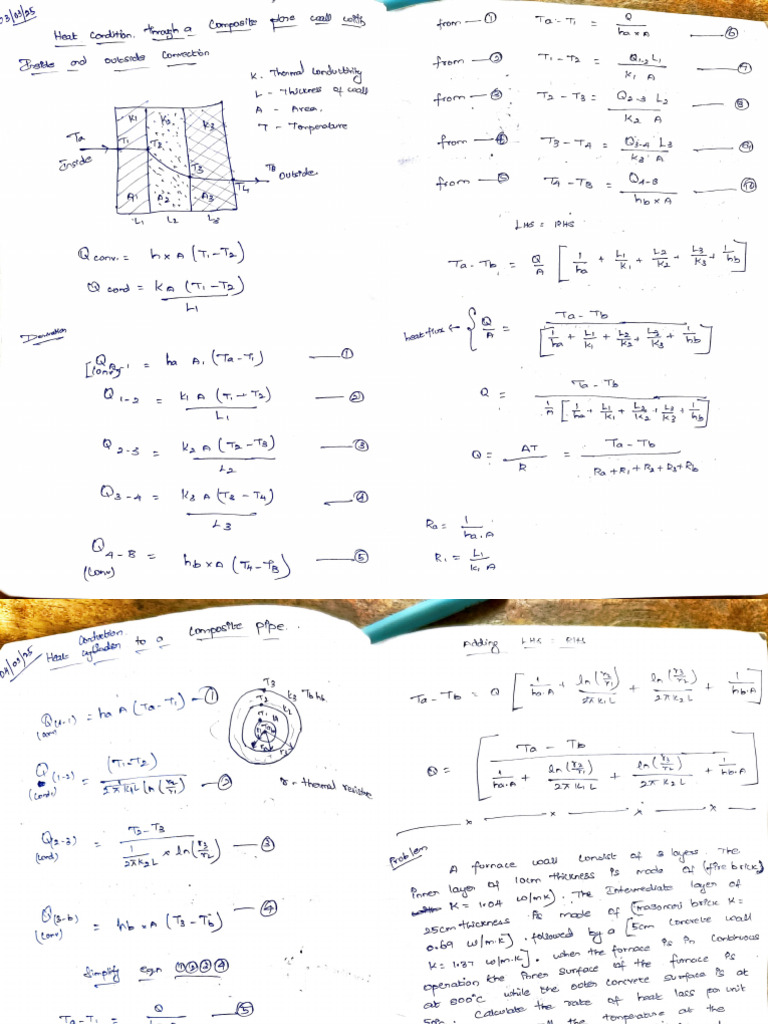 03/03/25
Heat Condition through a Composite plane wall with
Inside and outside Convection
K - Thermal conductivity
L - Thickness of wall
A - Area
T - Temperature
K1 K2 K3
Ta
Inside
T1 T2
T3
T4
TB
Outside
A1 A2 A3
L1 L2 L3
Q conv. = h x A (T1 - T2)
Q cond = KA (T1 - T2) / L1
Derivation
QA-1 = ha A1 (Ta - T1) —— ①
[conv]
Q1-2 = K1 A (T1 - T2) / L1 —— ②
Q2-3 = K2 A (T2 - T3) / L2 —— ③
Q3-4 = K3 A (T3 - T4) / L3 —— ④
Q4-B = hb x A (T4 - TB) —— ⑤
(conv)
from —— ① Ta - T1 = Q / ha x A —— ⑥
from —— ② T1 - T2 = Q1-2 L1 / K1 A —— ⑦
from —— ③ T2 - T3 = Q2-3 L2 / K2 A —— ⑧
from —— ④ T3 - T4 = Q3-4 L3 / K3 A —— ⑨
from —— ⑤ T4 - TB = Q4-B / hb x A —— ⑩
LHS = RHS
Ta - Tb = Q/A [1/ha + L1/K1 + L2/K2 + L3/K3 + 1/hb]
heat flux ← { Q/A = Ta - Tb / [1/ha + L1/K1 + L2/K2 + L3/K3 + 1/hb]
Q = Ta - Tb / 1/A [1/ha + L1/K1 + L2/K2 + L3/K3 + 1/hb]
Q = ΔT / R = Ta - Tb / Ra + R1 + R2 + R3 + Rb
Ra = 1 / ha.A
R1 = L1 / K1 A
04/03/25
Heat Conduction to a composite pipe.
cylinder
Q(a-1) = ha A (Ta - T1) —— ①
(conv)
Q(1-2) = (T1 - T2) / 1/2πK1L ln (r2/r1) —— ②
(cond)
Q(2-3) = T2 - T3 / 1/2πK2L x ln (r3/r2) —— ③
(cond)
Q(3-b) = hb x A (T3 - Tb) —— ④
(conv)
T3
T2
T1
K3
K2
Tb hb
r - thermal resistance
Simplify eqn ①②③④
Ta - T1 = Q —— ⑤
Adding LHS = RHS
Ta - Tb = Q [1/ha.A + ln(r2/r1)/2πK1L + ln(r3/r2)/2πK2L + 1/hb.A]
Q = [Ta - Tb / 1/ha.A + ln(r2/r1)/2πK1L + ln(r3/r2)/2πK2L + 1/hb.A]
Problem
A furnace wall consist of 3 layers. The
inner layer of 10cm thickness is made of (fire brick)
K = 1.04 w/mK). The Intermediate layer of
25cm thickness is made of [masonori brick K =
0.69 w/m.K]. followed by a [5cm concrete wall
K = 1.37 w/m.K]. when the furnace is in continuous
operation the inner surface of the furnace is
at 800°C while the outer concrete surface is at
50°c. Calculate the rate of heat loss per unit
the temperature at the